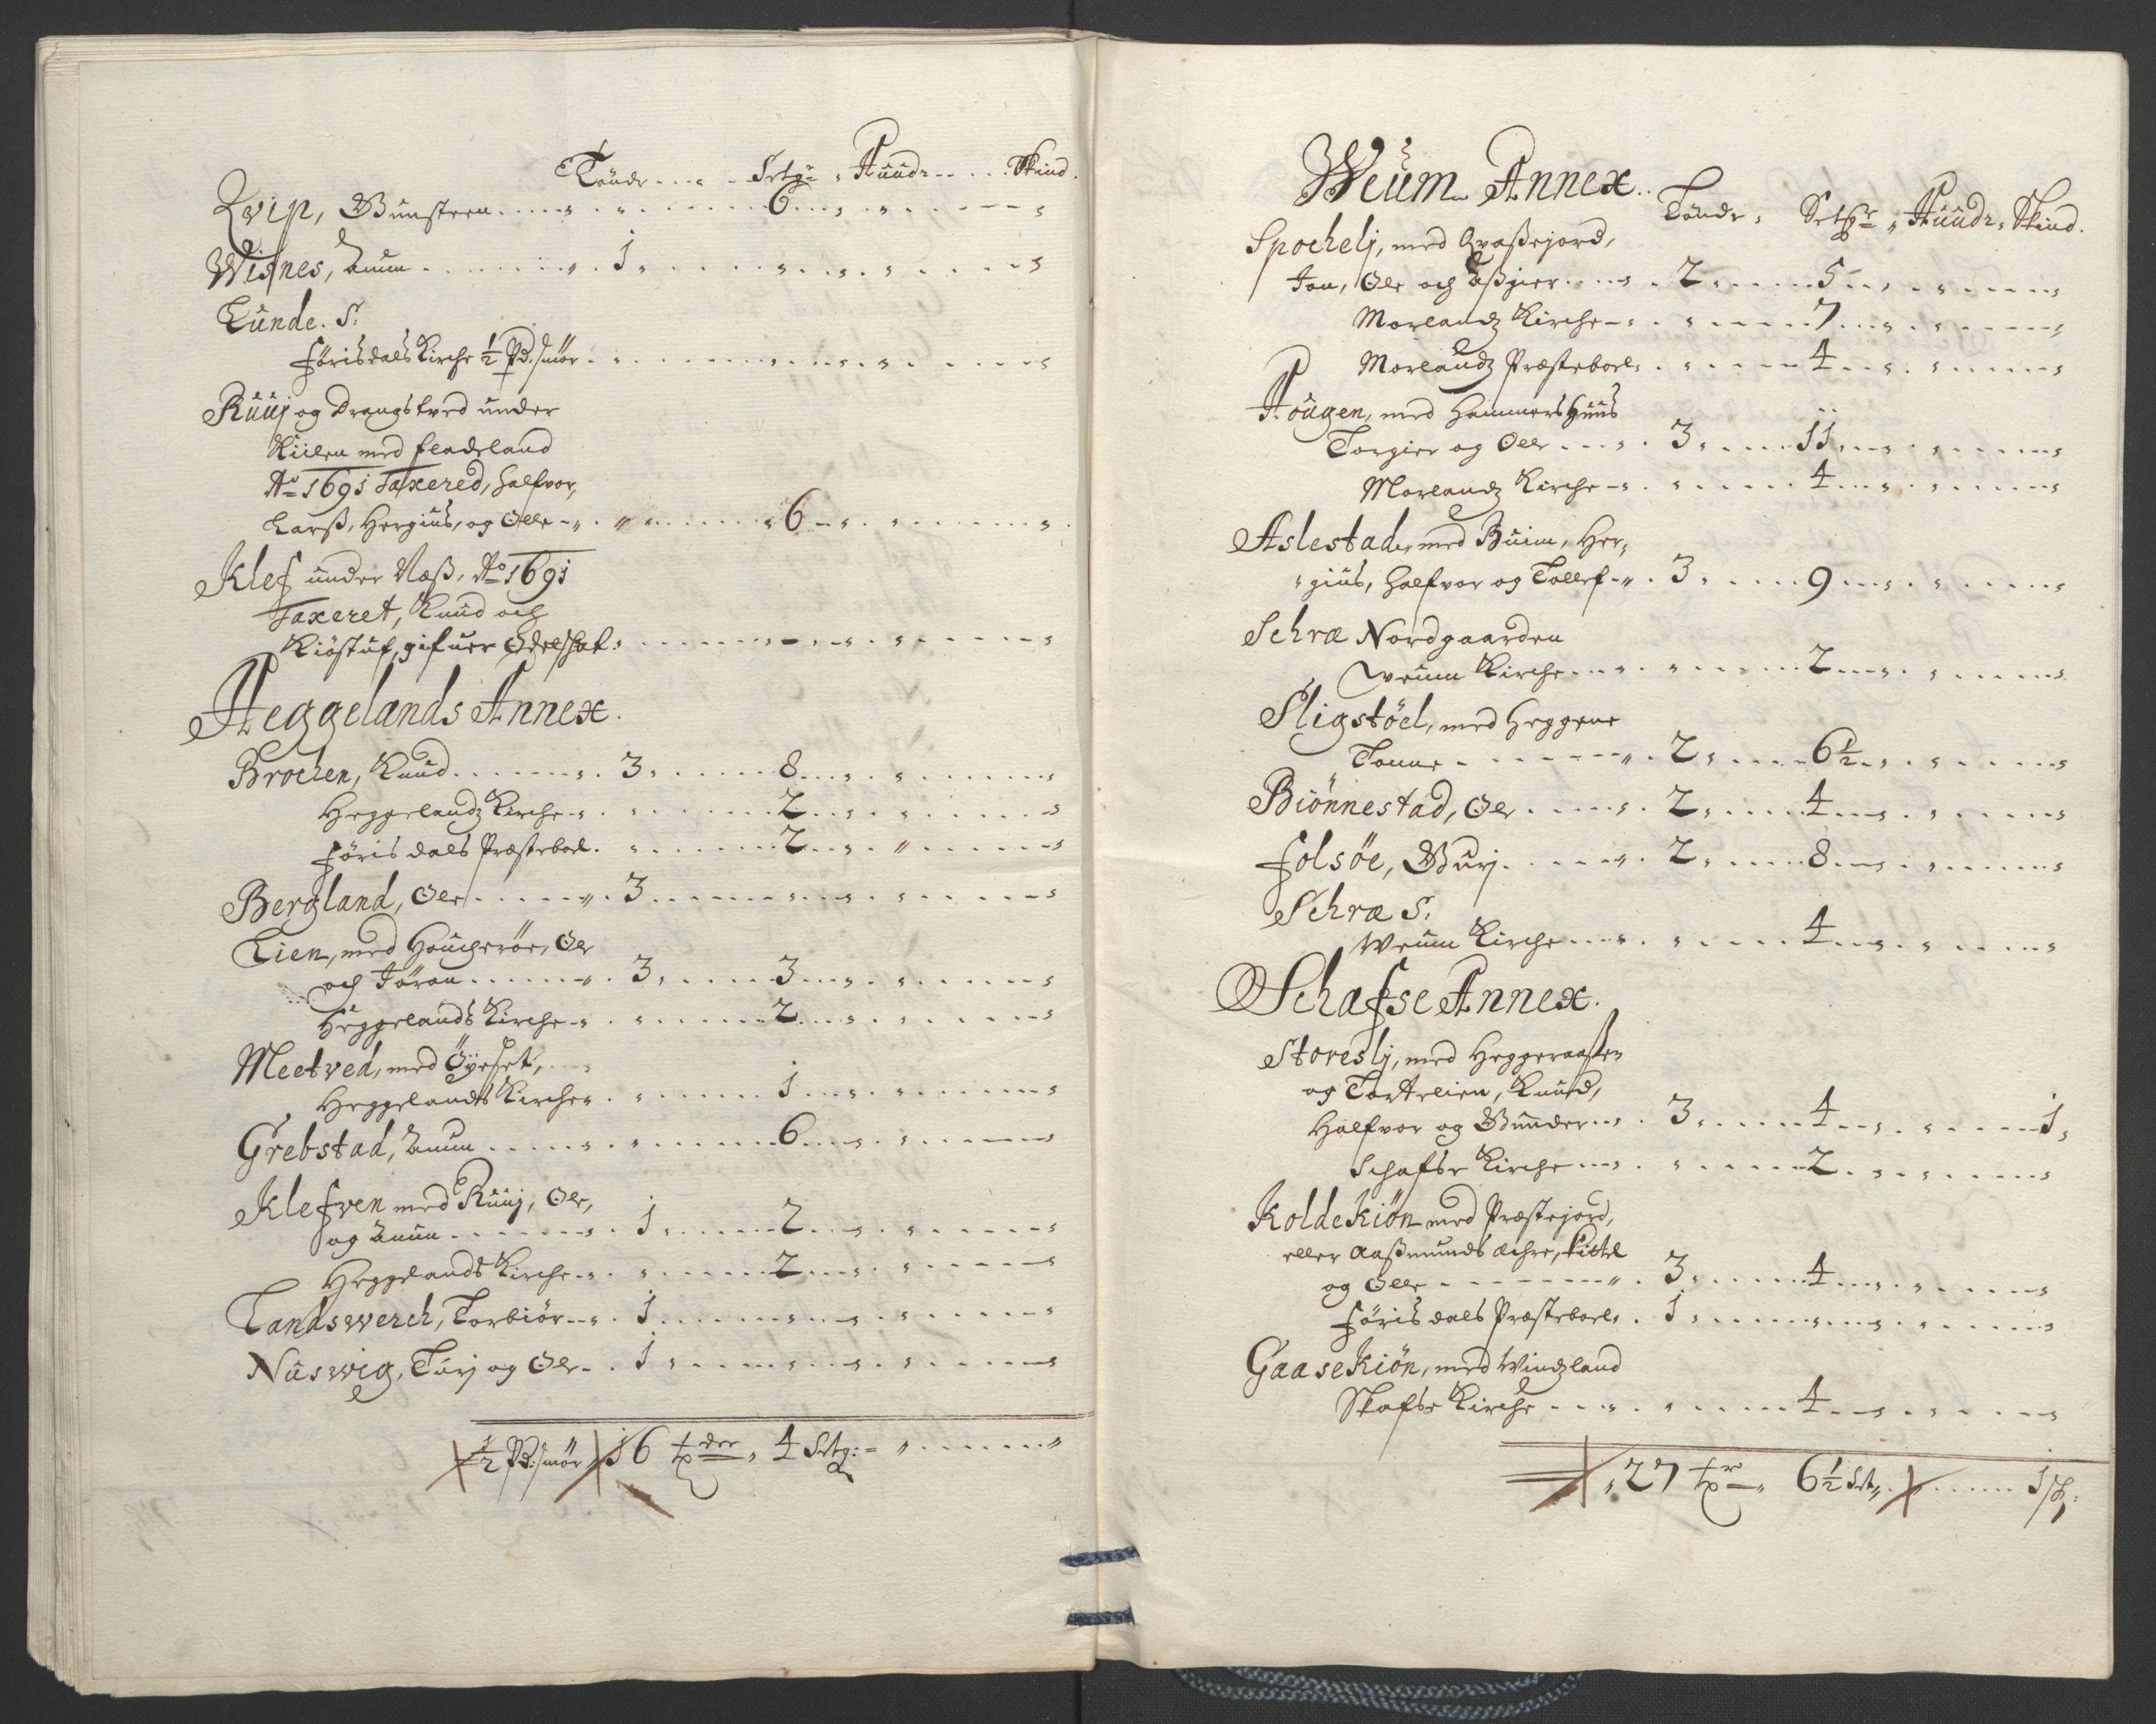 Tönde - - - Setgr „ Huudr - - - Skind.
Qvip, Gunsteen . . . . . 6 . . . . .
Wisnes, Anun . . . . . 1 . . . . .
Lunde. S:
Förisdals Kirche ½ Pd: smör . . . . .
Ruuj og Drangstved under
Kiilen med fladeland
Ao 1691 Taxered, Halfvor,
Larß, Hergius, og Olle . . . . . 6 . . . . .
Klef under Næß, Ao 1691
Taxeret, Knud och
Kiöstuf, gifuer Odelskat: . . . . .
Heggelands Annex.
Brochen, Knud . . . . . 3 . . . . . 8 . . . . .
Heggelandz Kirche . . . . . 2 . . . . .
Föris dals Præsteboel . . . . . 2 . . . . .
Bergland, Ole . . . . . 3 . . . . .
Lien, med Houcheröe, Ole
och Jöran . . . . . 3 . . . . . 3 . . . . .
Heggelands Kirche . . . . . 2 . . . . .
Meetved, med Öyeset,
Heggelands Kirche . . . . . 1 . . . . .
Grebstad, Anun . . . . . 6 . . . . .
Klefven med Ruuj, Ole,
og Anun . . . . . 1 . . . . . 2 . . . . .
Heggelands Kirche . . . . . 2 . . . . .
Landsverch, Torbiör . . . . . 1 . . . . .
Nuswig, Turj og Ole . . 1 . . . . .
½ Pd: smör 16 tdr „ 4 Setg: = „ . . . . . „
Weum Annex.
Tönde „ Setgr „ Huudr „ Skind.
Spochelj, med Qvaßejord,
Jon, Ole och Aßgier . . . . . 2 . . . . . 5 . . . . .
Morlandz Kirche . . . . . 7 . . . . .
Morlandz Præsteboel . . . . . 4 . . . . .
Hougen, med Hammershuus
Torgier og Olle . . . . . 3 . . . . . 11 . . . . .
Morlandz Kirche . . . . . 4 . . . . .
Aslestad, med Buim, Her„
„gius, Halfvor og Tollef . . 3 . . . . . 9 . . . . .
Schræ Nordgaarden
Weum Kirche . . . . . 2 . . . . .
Sligstöel, med Heggene
Tonne . . . . . 2 . . . . . 6½ . . . . .
Biönnestad, Ole . . . . . 2 . . . . . 4 . . . . .
Folsöe, Gurj . . . . . 2 . . . . . 8 . . . . .
Schræ S.
Weum Kirche . . . . . 4 . . . . .
Schafse Annex.
Storeslj, med Heggeraaßen
og Tortelien, Knud,
Halfvor og Gunder . . . 3 . . . . . 4 . . . . . 1„
Schafse Kirche . . . . . 2 . . . . .
Koldekiön med Præstejord,
eller Aaßmunds Achre, Kittel
og Olle . . . . . 3 . . . . . 4 . . . . .
Föris dals Præsteboel . . 1 . . . . .
Gaasekiön, med Windzland
Skafse Kirche . . . . . 4 . . . . .
„ 27 tdr „ 6½ Set„ . . . . . 1 sk: